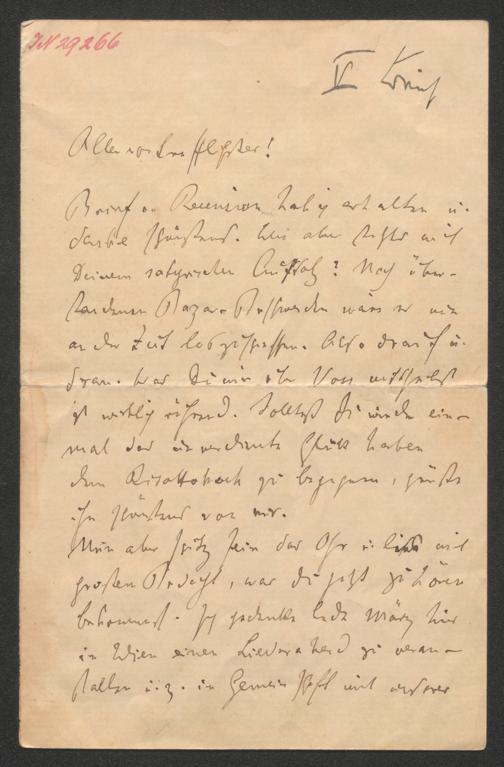 IN 29266
V Krит
Allervortrefflichster!
Brief u. Recension hab ich erhalten u.
danke schönstens. Wie aber steht's mit
Deinem satyrischen Aufsatz? Nach über-
standenen Bazar-Beschwerden wäre es nun
an der Zeit loszuschießen. Also drauf u.
dran. Was Du mir über Voss mittheilst
ist wirklich rührend. Solltest Du wieder ein-
mal das unverdiente Glück haben
dem Risottokoch zu begegnen, grüße
ihn schönstens von mir.
Nun aber spitz fein das Ohr u. lies mit
großer Andacht, was Du jetzt zu hören
bekommst. Ich gedenke Ende März hier
in Wien einen Liederabend zu veran-
stalten u. z. in Gemeinschaft mit anderen